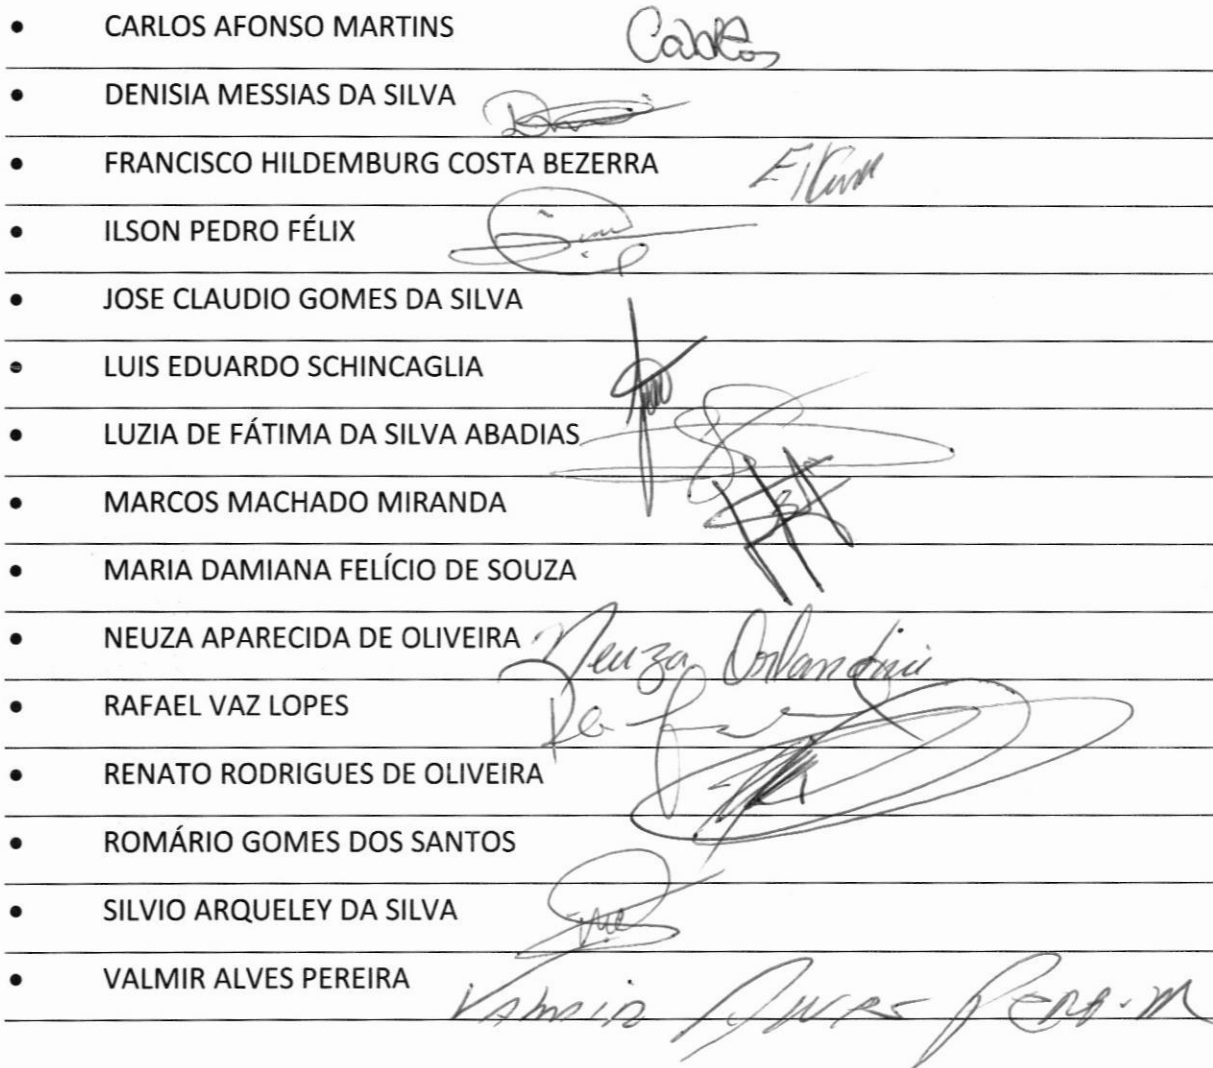 • CARLOS AFONSO MARTINS
• DENISIA MESSIAS DA SILVA
• FRANCISCO HILDEMBURG COSTA BEZERRA
• ILSON PEDRO FÉLIX
• JOSE CLAUDIO GOMES DA SILVA
• LUIS EDUARDO SCHINCAGLIA
• LUZIA DE FÁTIMA DA SILVA ABADIAS
• MARCOS MACHADO MIRANDA
• MARIA DAMIANA FELÍCIO DE SOUZA
• NEUZA APARECIDA DE OLIVEIRA Neuza Orlandini
• RAFAEL VAZ LOPES
• RENATO RODRIGUES DE OLIVEIRA
• ROMÁRIO GOMES DOS SANTOS
• SILVIO ARQUELEY DA SILVA
• VALMIR ALVES PEREIRA